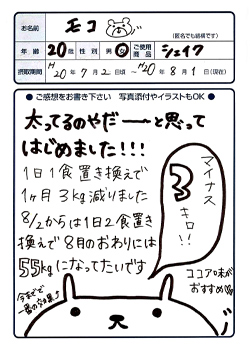 お名前 モコ
(匿名でも結構です)
年齢 20歳 性別 男・女 ご使用商品 シェイク
摂取期間 H20年7月2日頃〜H20年8月1日(現在)
●ご感想をお書き下さい 写真添付やイラストもOK●
太ってるのやだーーと思って
はじめました!!!
1日1食置き換えで
1ヶ月3kg減りました
8/2からは1日2食置き
換えで8月のおわりには
55kgになってたいです
マイナス
3
キロ!!
ココア味が
おすすめ
今までで
一番の効果!